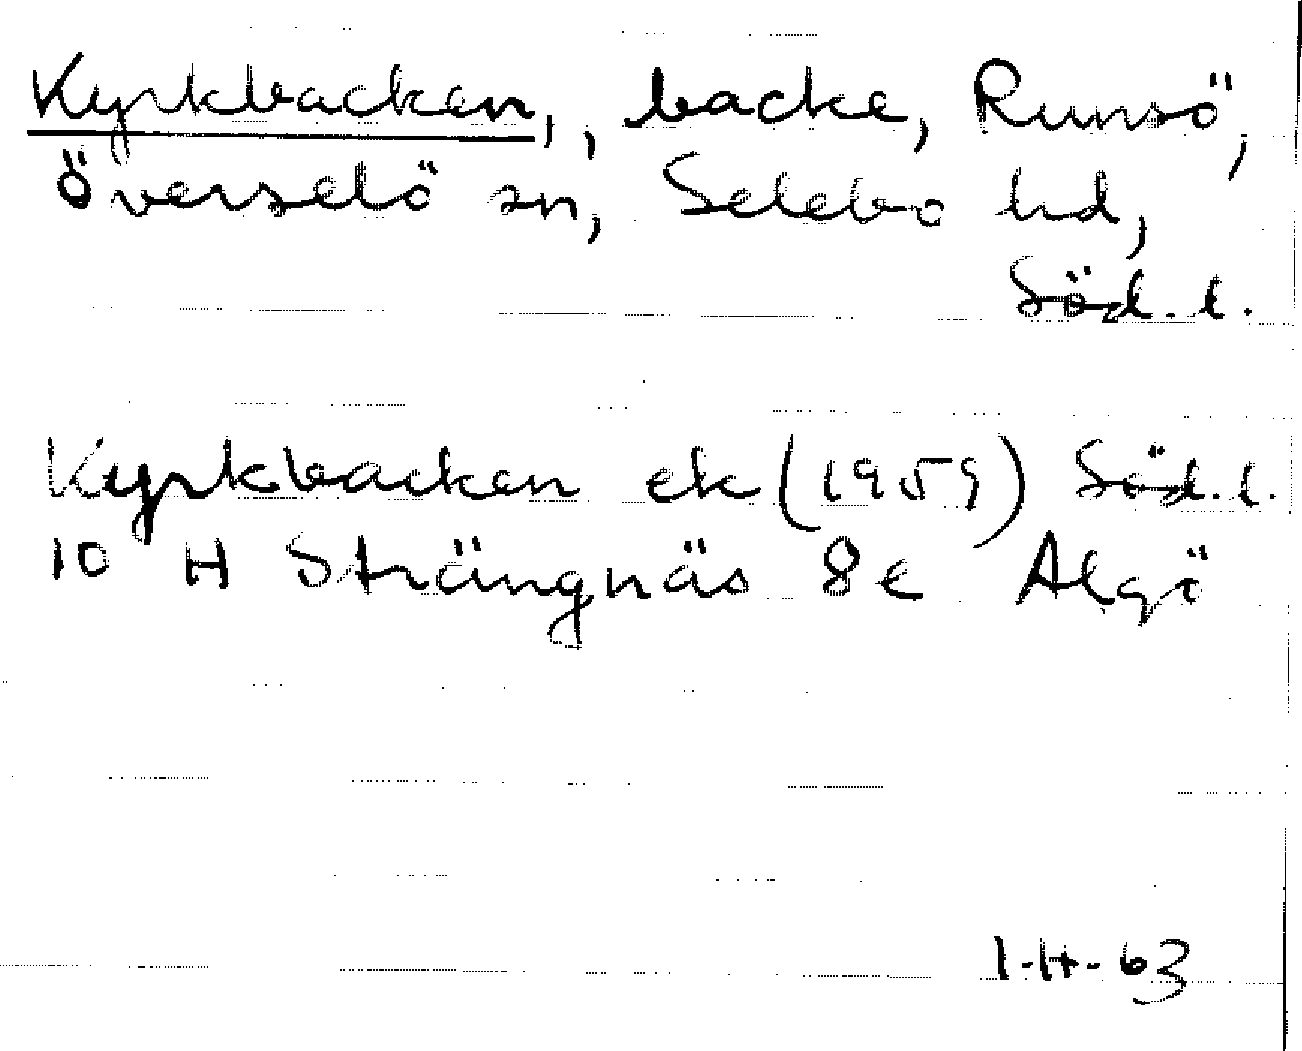 Kyrkbacken, , backe, Runsö,
Överselö sn, Selebo hd,
Söd. l.
Kyrkbacken ek (1959) Söd. l.
10 H Strängnäs 8e Algö
1-H-63